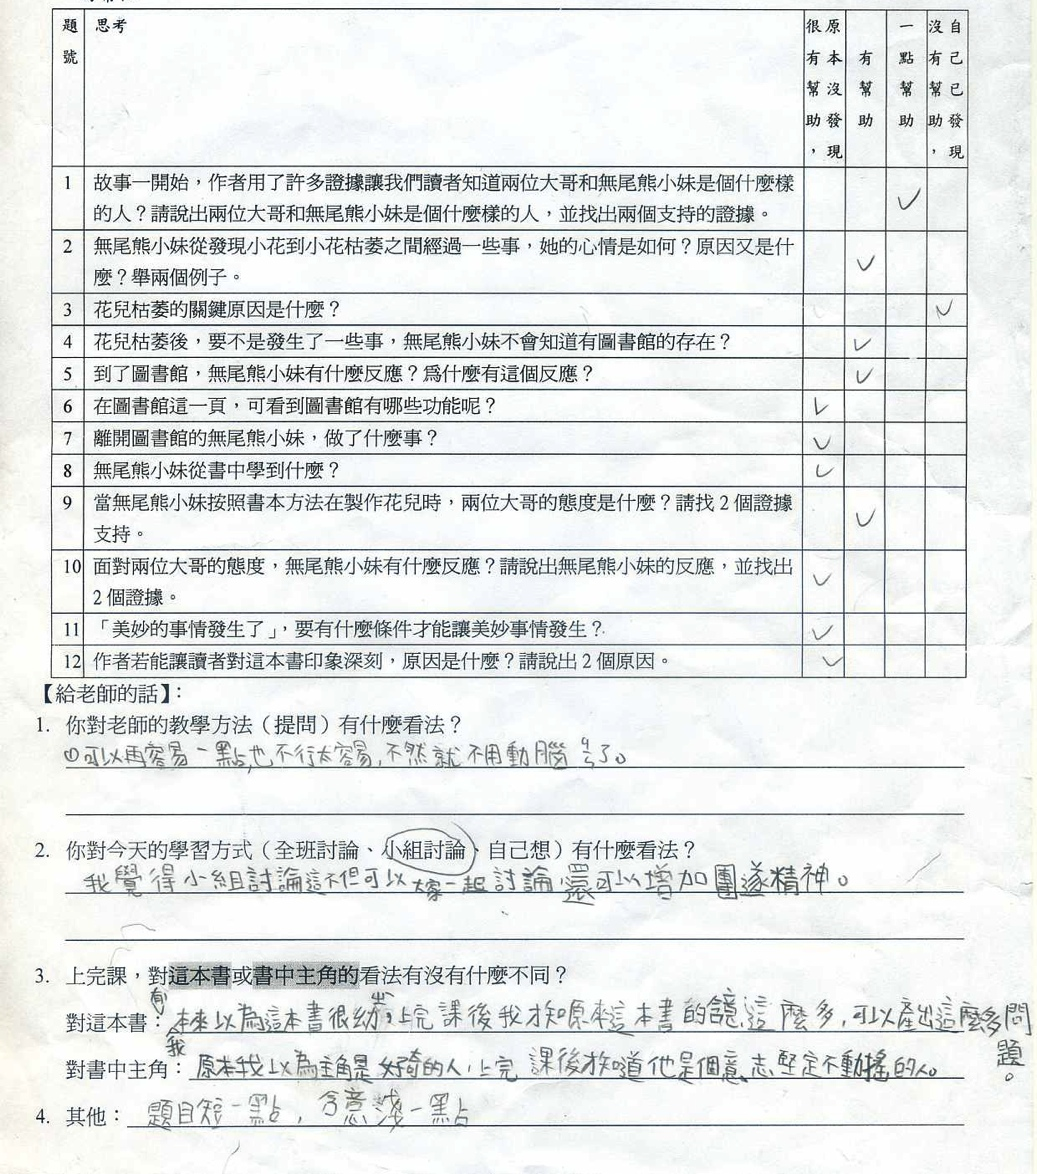 題號 思考 原本沒發現，很有幫助 有幫助 一點幫助 自己已發現，沒有幫助
1 故事一開始，作者用了許多證據讓我們讀者知道兩位大哥和無尾熊小妹是個什麼樣
的人？請說出兩位大哥和無尾熊小妹是個什麼樣的人，並找出兩個支持的證據。
2 無尾熊小妹從發現小花到小花枯萎之間經過一些事，她的心情是如何？原因又是什
麼？舉兩個例子。
3 花兒枯萎的關鍵原因是什麼？
4 花兒枯萎後，要不是發生了一些事，無尾熊小妹不會知道有圖書館的存在？
5 到了圖書館，無尾熊小妹有什麼反應？為什麼有這個反應？
6 在圖書館這一頁，可看到圖書館有哪些功能呢？
7 離開圖書館的無尾熊小妹，做了什麼事？
8 無尾熊小妹從書中學到什麼？
9 當無尾熊小妹按照書本方法在製作花兒時，兩位大哥的態度是什麼？請找 2 個證據
支持。
10 面對兩位大哥的態度，無尾熊小妹有什麼反應？請說出無尾熊小妹的反應，並找出
2 個證據。
11 「美妙的事情發生了」，要有什麼條件才能讓美妙事情發生？
12 作者若能讓讀者對這本書印象深刻，原因是什麼？請說出 2 個原因。
【給老師的話】：
1. 你對老師的教學方法（提問）有什麼看法？
可以再容易一點，也不行太容易，不然就不用動腦ㄋㄠˇ了。
2. 你對今天的學習方式（全班討論、小組討論、自己想）有什麼看法？
我覺得小組討論這不但可以 一起討論還可以增加團 精神。
3. 上完課，對這本書或書中主角的看法有沒有什麼不同？
對這本書：我本來以為這本書很幼 ，上完課後我才 原來這本書的 意這麼多，可以產出這麼多問題。
對書中主角：原本我以為主角是好奇的人，上完課後才 道他是個意志堅定不動搖的人。
4. 其他：題目短一點，含意淺一點